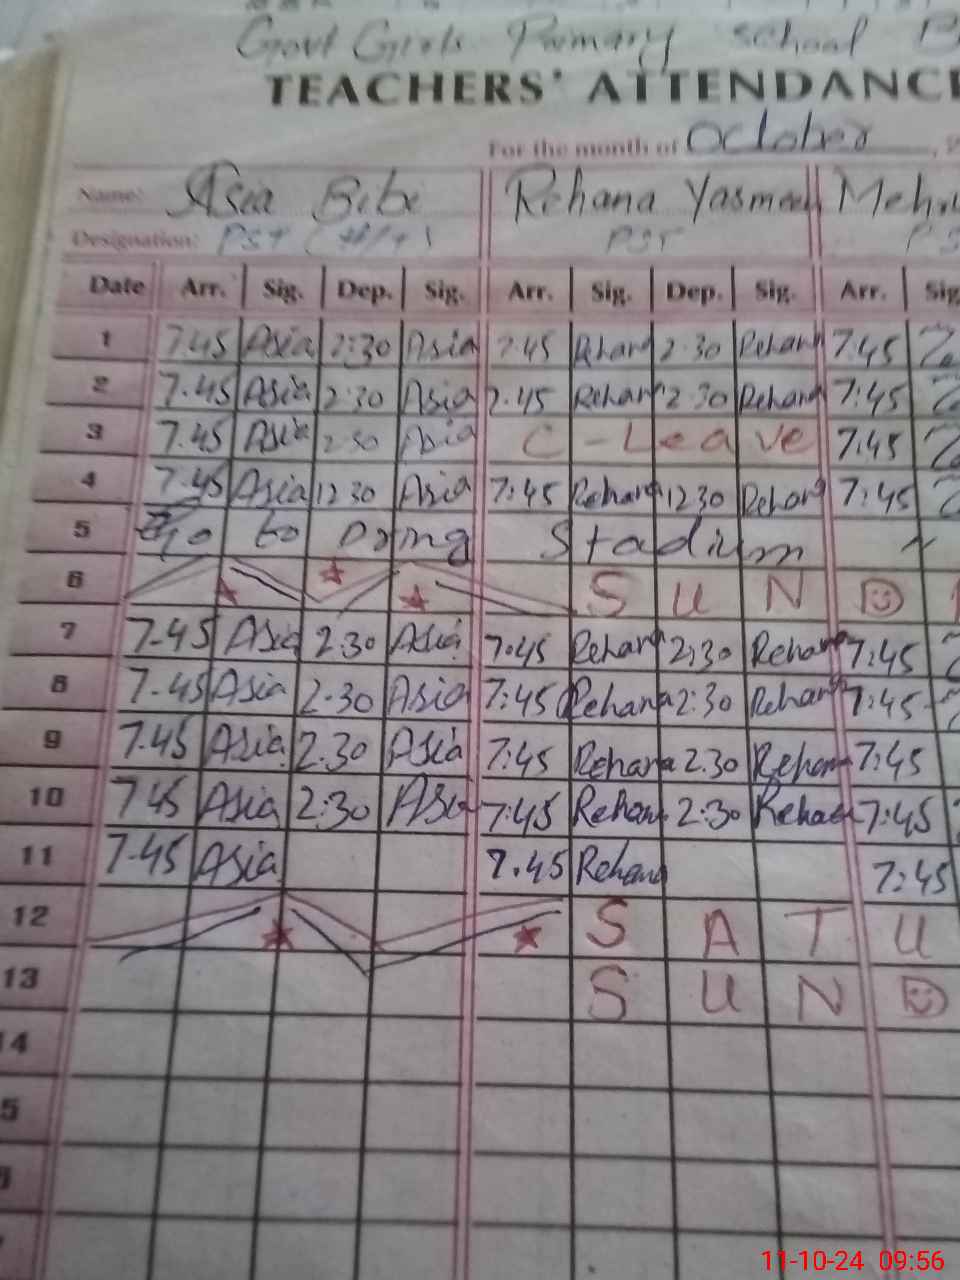 Govt Girls Primary school B
TEACHERS' ATTENDANCE
For the month of October, 2
Name: Asia Bibi Rehana Yasmeen Meh
Designation: PST (H/T) PST PS
Date Arr. Sig. Dep. Sig. Arr. Sig. Dep. Sig. Arr. Sig
1 7.45 Asia 2:30 Asia 7:45 Rehana 2:30 Rehana 7:45
2 7.45 Asia 2:30 Asia 7:45 Rehana 2:30 Rehana 7:45
3 7.45 Asia 2:30 Asia C-Leave 7:45
4 7.45 Asia 12 30 Asia 7:45 Rehana 12 30 Rehana 7:45
5 Go to Stadium
6 SUND
7 7-45 Asia 2:30 Asia 7:45 Rehana 2:30 Rehana 7:45
8 7-45 Asia 2.30 Asia 7:45 Rehana 2:30 Rehana 7:45
9 7.45 Asia 2.30 Asia 7:45 Rehana 2.30 Rehana 7:45
10 7 45 Asia 2:30 Asia 7:45 Rehana 2:30 Rehana 7:45
11 7-45 Asia 7.45 Rehana 7:45
12 SATU
13 SUND
14
5
11-10-24 09:56